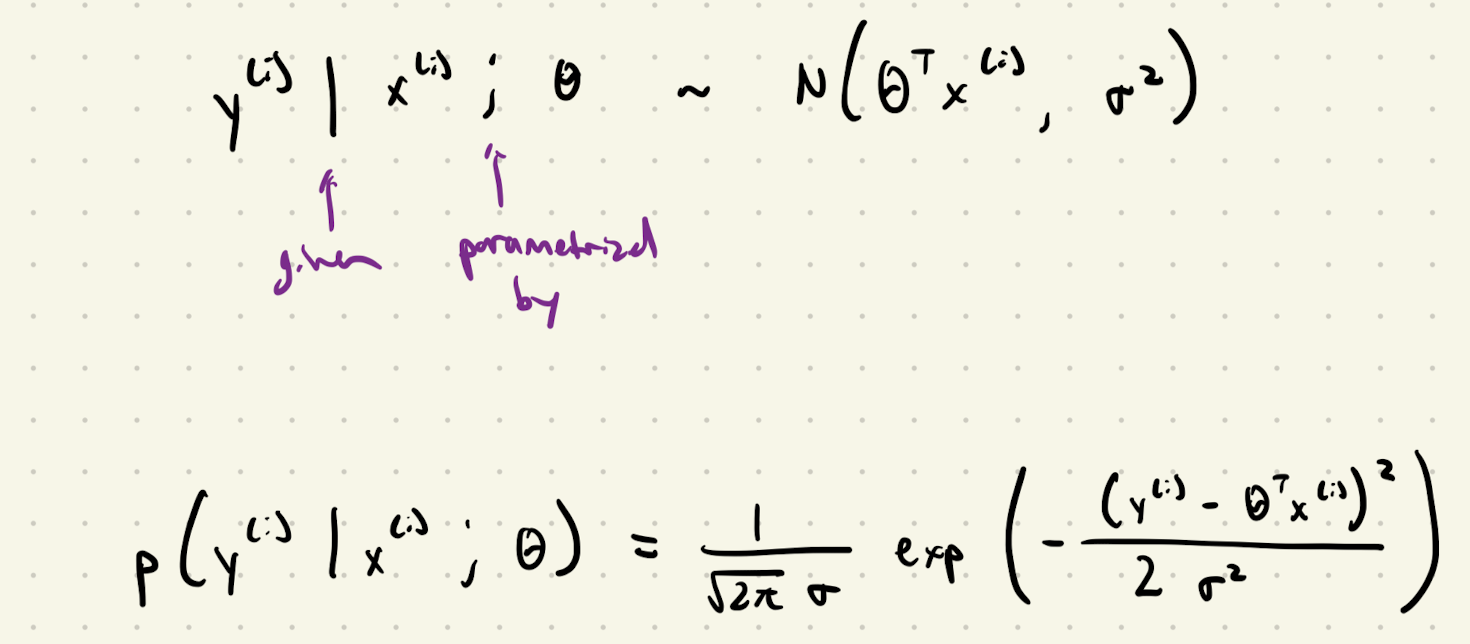 y^{(i)} | x^{(i)} ; θ ~ N(θ^T x^{(i)}, σ^2)
given parametrized
by
p(y^{(i)} | x^{(i)} ; θ) = \frac{1}{\sqrt{2π} σ} exp(-\frac{(y^{(i)} - θ^T x^{(i)})^2}{2 σ^2})